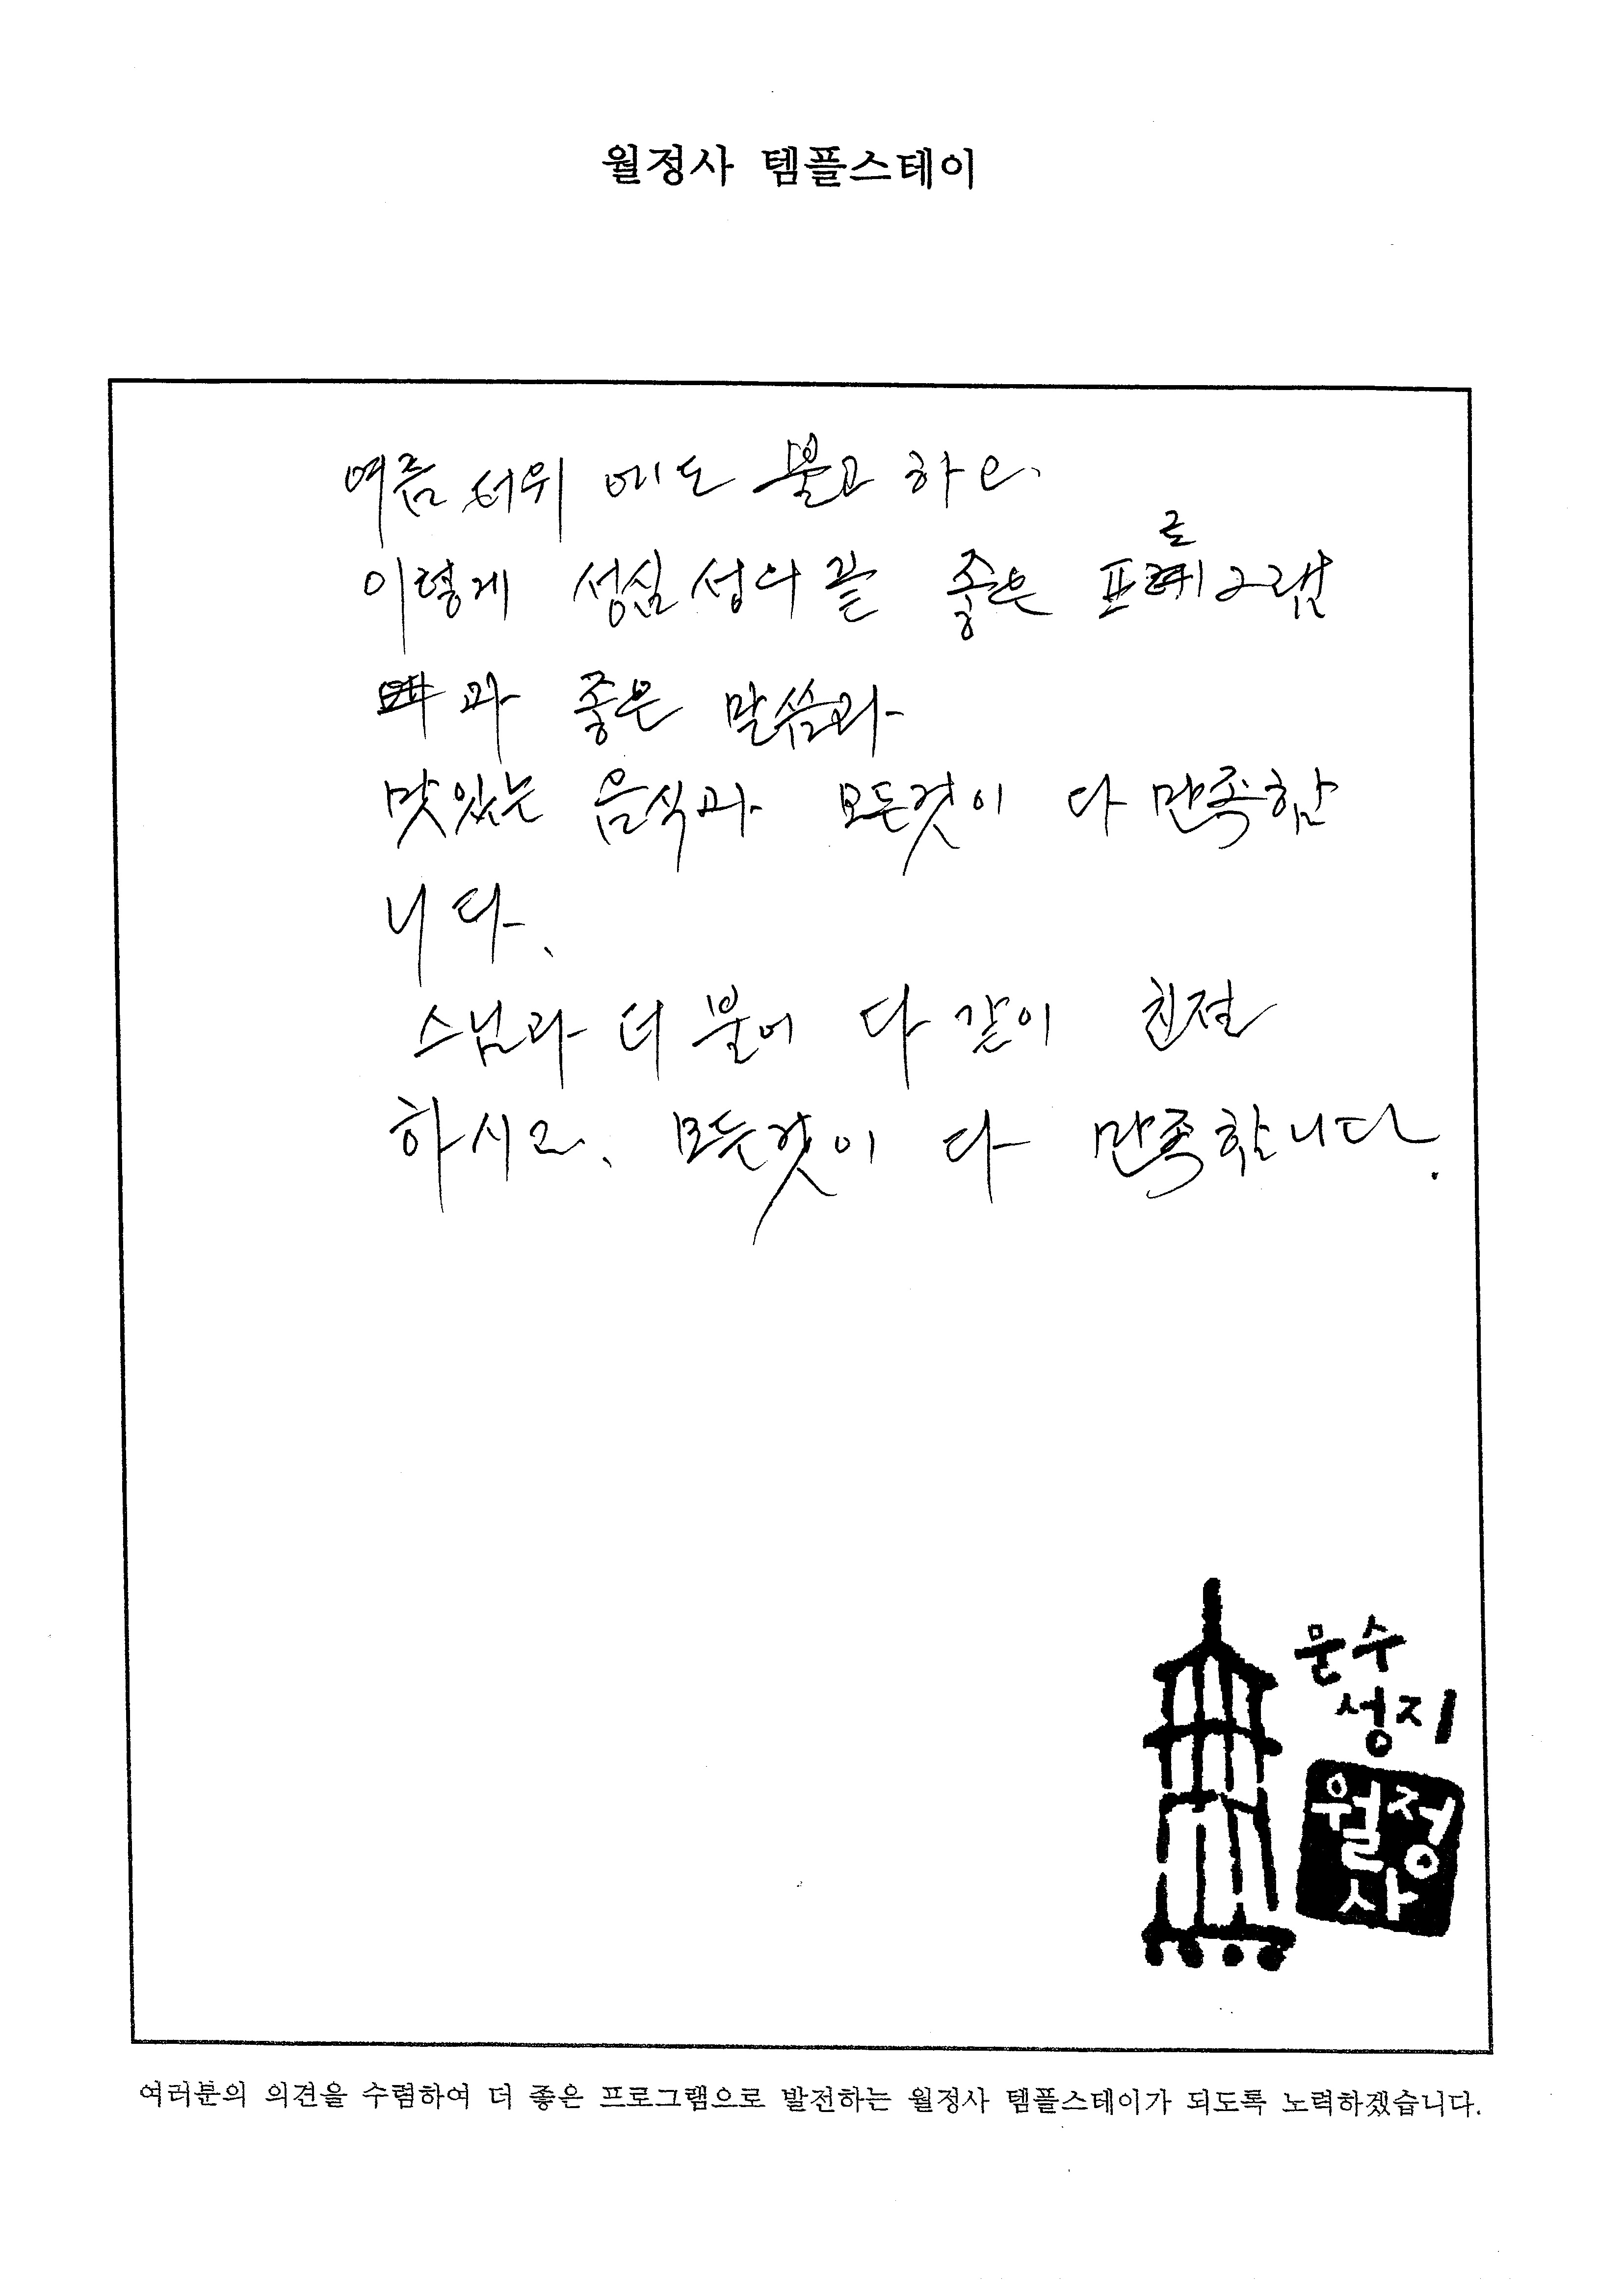 월정사 템플스테이
여름 더위 에도 불고 하고.
이렇게 성심 성의 끝 좋은 프로그램
과 좋은 말씀과
맛있는 음식과 모든것이 다 만족함
니다.
스님과 더 불어 다 같이 친절
하시고. 모든것이 다 만족합니다.
문수
성지
월정
사
여러분의 의견을 수렴하여 더 좋은 프로그램으로 발전하는 월정사 템플스테이가 되도록 노력하겠습니다.